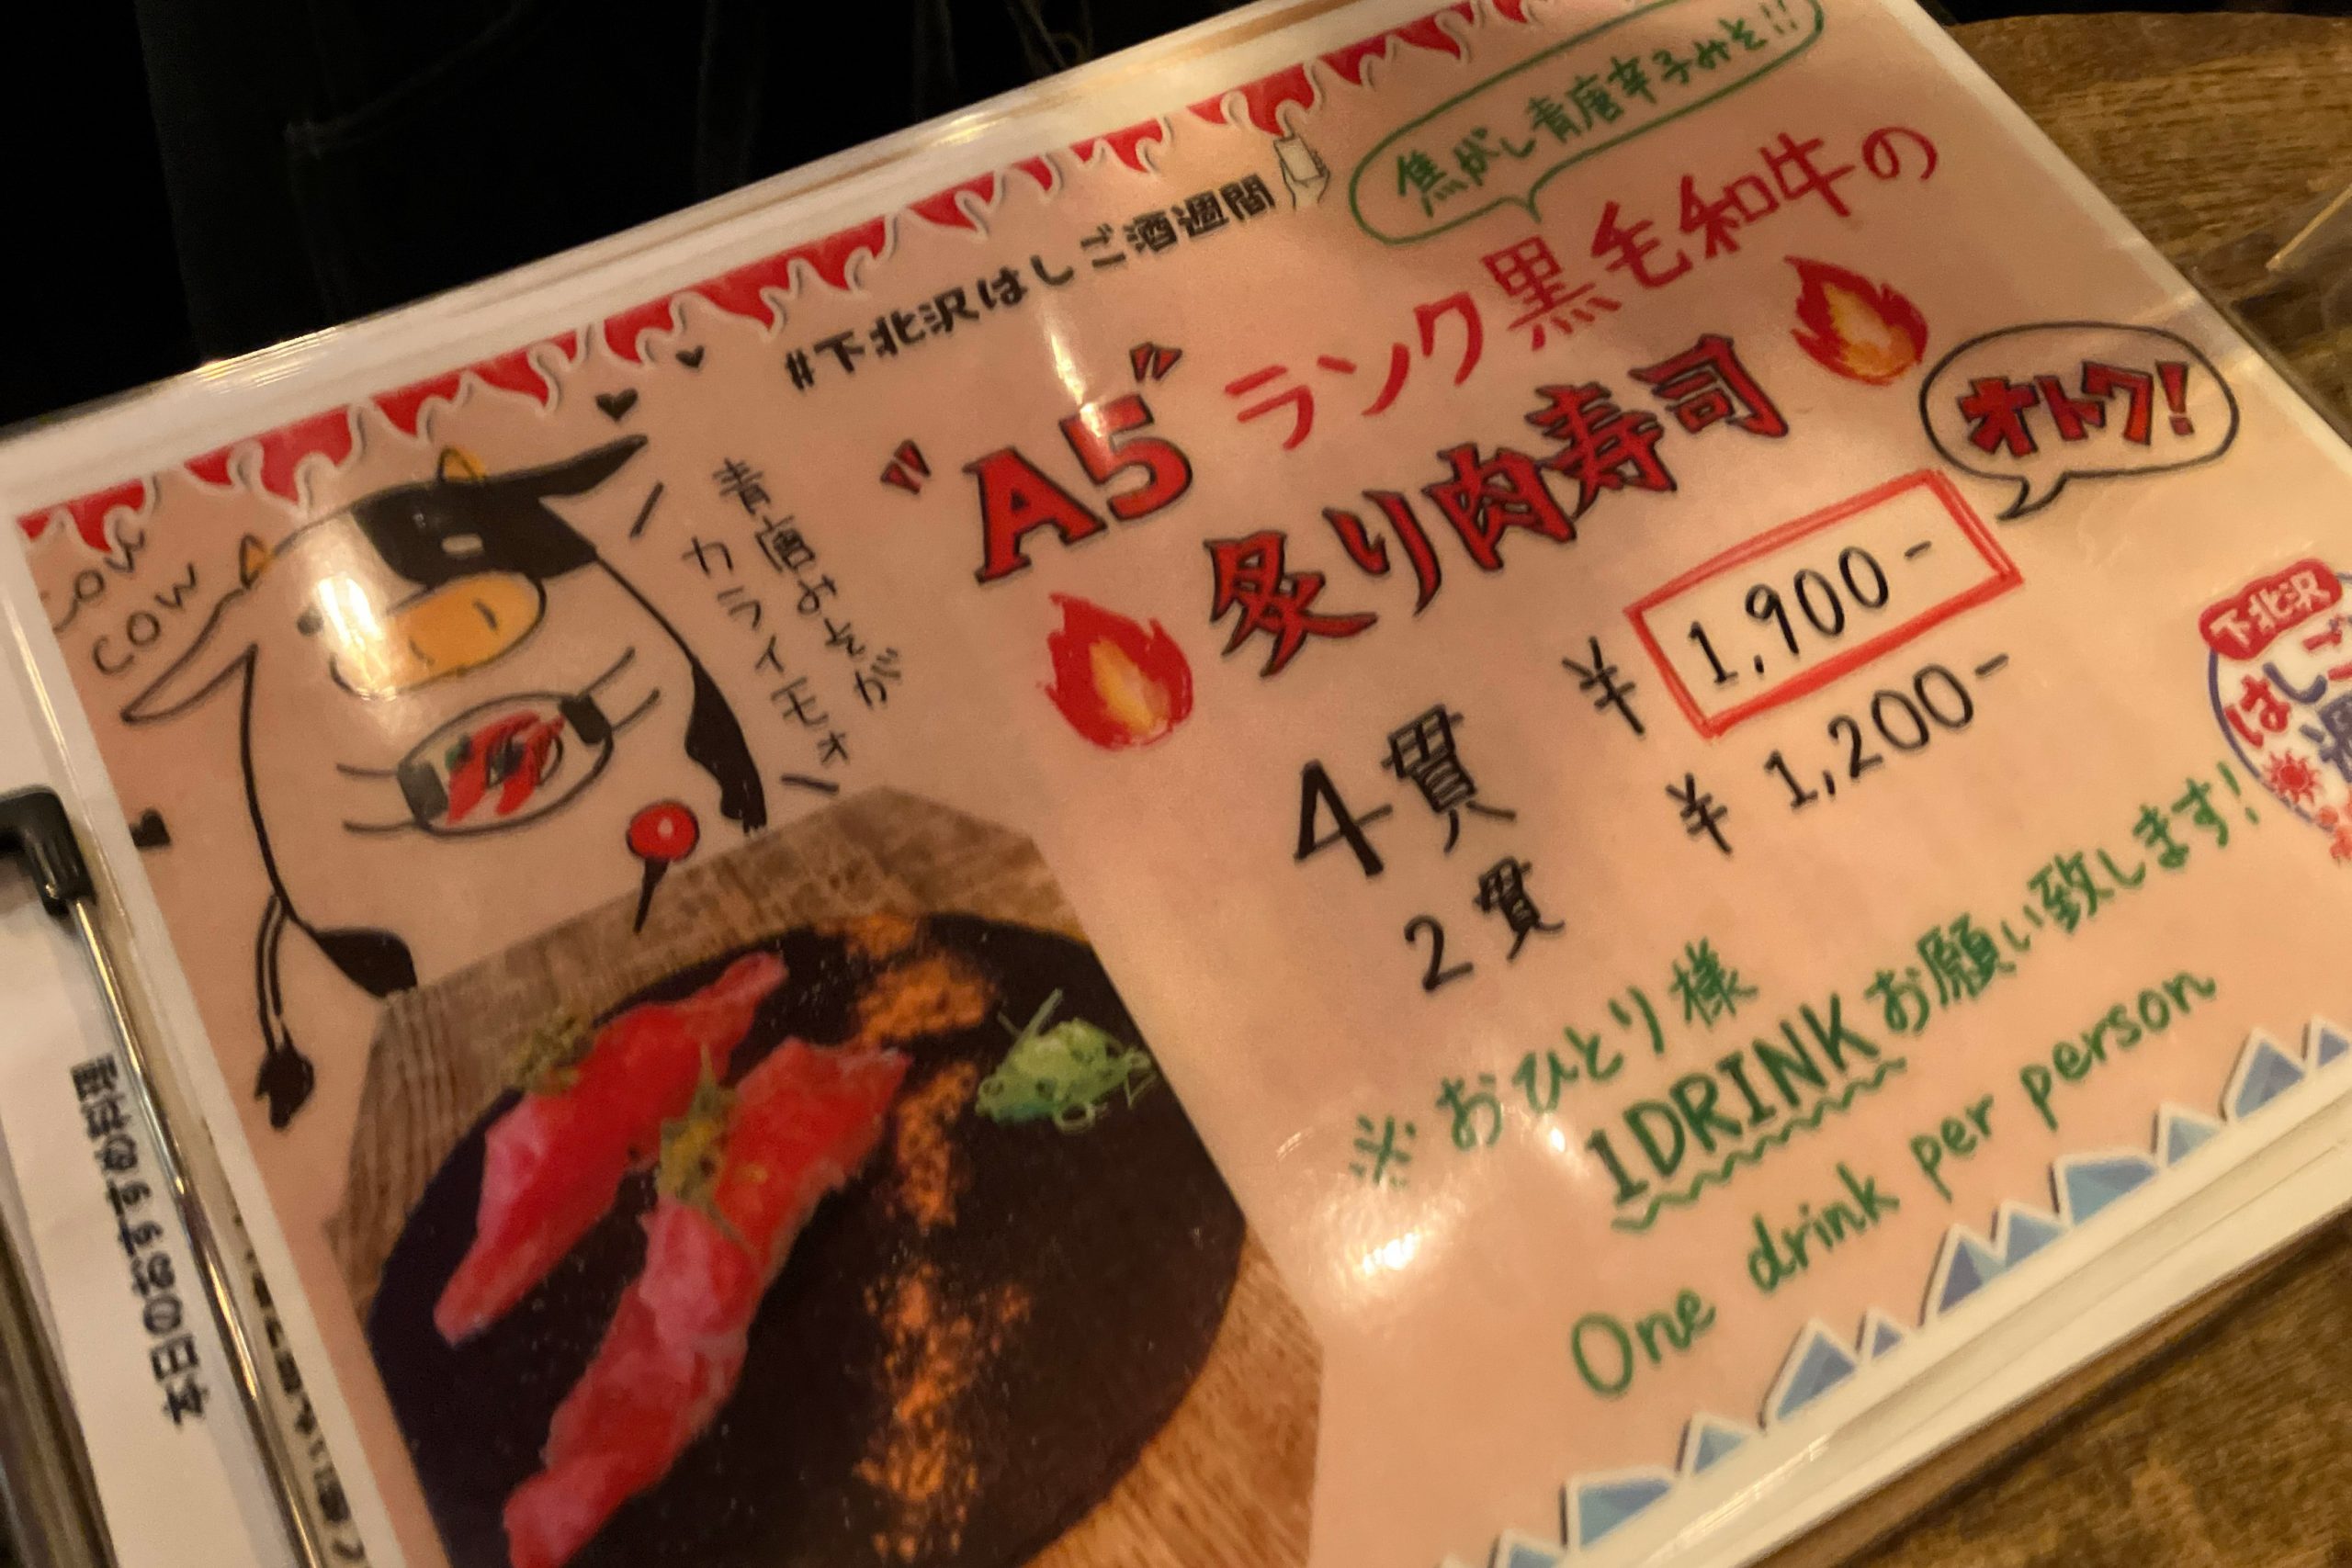 焦がし青唐辛子みそ!!
#下北沢はしご酒週間
"A5"ランク黒毛和牛の
炙り肉寿司
オトク!
4貫 ¥1,900-
2貫 ¥1,200-
※おひとり様
1DRINKお願い致します!
One drink per person
cow
cow
青唐みそが
カライモォー
下北沢
はしご
週
本日のおすすめ